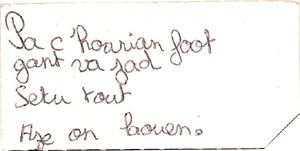 Pa c'hoarian foot
gant va zad
Setu tout
Aze on laouen.